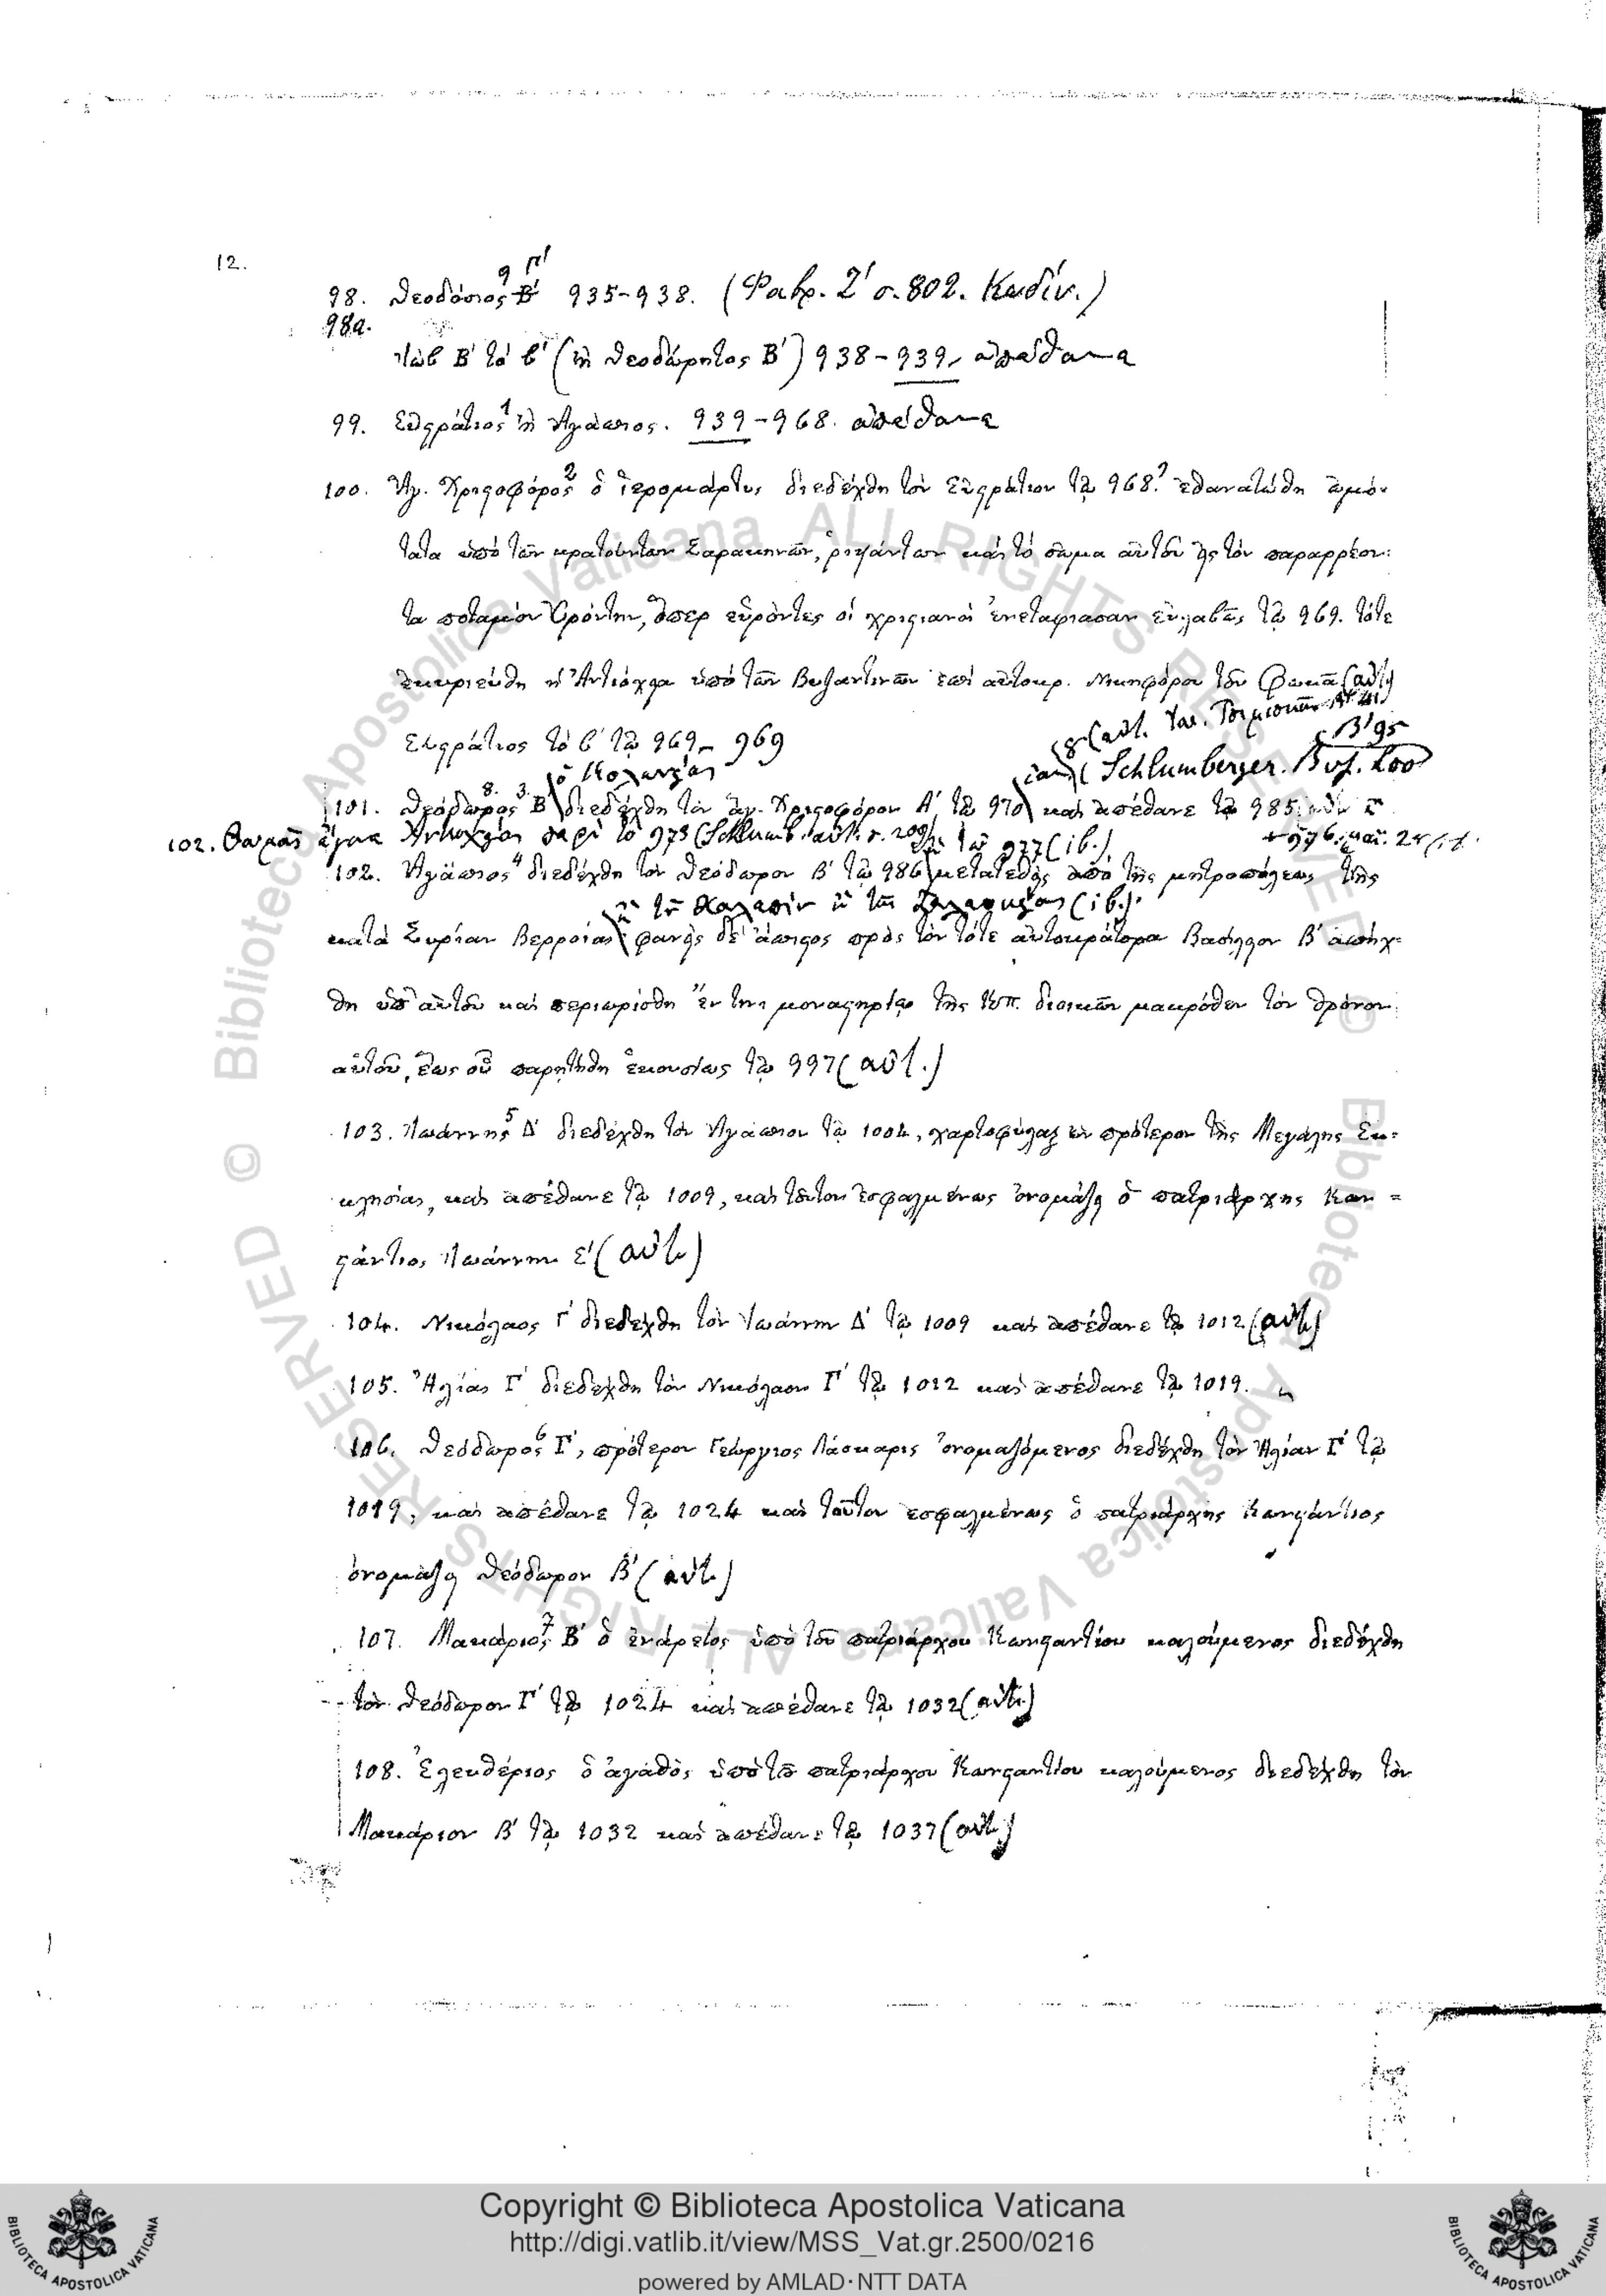 12.
98. Θεοδόσιος Β' 935-938. (Φαβρ. Ζ' σ. 802. Κωδίν.)
98a.
Ἰὼβ Β' τὸ β' (ἢ Θεοδώρητος Β') 938-939, ἀπέθανε
99. Εὐστράτιος ἢ Ἀγάπιος. 939-968. ἀπέθανε
100. Ἅγ. Χριστοφόρος ὁ ἱερομάρτυς διεδέχθη τὸν Εὐστράτιον τῷ 968. ἐθανατώθη ὠμό-
τατα ὑπὸ τῶν κρατούντων Σαρακηνῶν, ῥιψάντων καὶ τὸ σῶμα αὐτοῦ εἰς τὸν παραρρέον-
τα ποταμὸν Ὀρόντην, ὅπερ εὑρόντες οἱ χριστιανοὶ ἐνεταφίασαν εὐλαβῶς τῷ 969. τότε
ἐκυριεύθη ἡ Ἀντιόχεια ὑπὸ τῶν Βυζαντινῶν ἐπὶ αὐτοκρ. Νικηφόρου τοῦ Φωκᾶ (αὐτ.)
Εὐστράτιος τὸ β' τῷ 969 - 969
(Schlumberger.
ὁ Κολωνείας
101. Θεόδωρος Β' διεδέχθη τὸν ἅγ. Χριστοφόρον Α' τῷ 970 καὶ ἀπέθανε τῷ 985
102. Θωμᾶς Ἀντιοχείας περὶ τὸ 973 (Schlumb. αὐτ. σ. τῷ 977 (ib.)
102. Ἀγάπιος διεδέχθη τὸν Θεόδωρον Β' τῷ 986 μετατεθεὶς ἀπὸ τῆς μητροπόλεως τῆς
(ib.)
κατὰ Συρίαν Βερροίας φανεὶς δὲ ἄπιστος πρὸς τὸν τότε αὐτοκράτορα Βασίλειον Β' ἀπήχ-
θη ὑπ' αὐτοῦ καὶ περιωρίσθη ἔν τινι μοναστηρίῳ τῆς Κπ. διοικῶν μακρόθεν τὸν θρόνον
αὐτοῦ, ἕως οὗ παρῃτήθη ἑκουσίως τῷ 997 (αὐτ.)
103. Ἰωάννης Δ' διεδέχθη τὸν Ἀγάπιον τῷ 1004, χαρτοφύλαξ ὢν πρότερον τῆς Μεγάλης Ἐκ-
κλησίας, καὶ ἀπέθανε τῷ 1009, καὶ τοῦτον ἐσφαλμένως ὀνομάζει ὁ πατριάρχης Κων-
στάντιος Ἰωάννην Ε' (αὐτ.)
104. Νικόλαος Γ' διεδέχθη τὸν Ἰωάννην Δ' τῷ 1009 καὶ ἀπέθανε τῷ 1012 (αὐτ.)
105. Ἠλίας Γ' διεδέχθη τὸν Νικόλαον Γ' τῷ 1012 καὶ ἀπέθανε τῷ 1019.
106. Θεόδωρος Γ', πρότερον Γεώργιος Λάσκαρις ὀνομαζόμενος διεδέχθη τὸν Ἠλίαν Γ' τῷ
1019, καὶ ἀπέθανε τῷ 1024 καὶ τοῦτον ἐσφαλμένως ὁ πατριάρχης Κωνστάντιος
ὀνομάζει Θεόδωρον Β' (αὐτ.)
107. Μακάριος Β' ὁ ἐνάρετος ὑπὸ τοῦ πατριάρχου Κωνσταντίου καλούμενος διεδέχθη
τὸν Θεόδωρον Γ' τῷ 1024 καὶ ἀπέθανε τῷ 1032 (αὐτ.)
108. Ἐλευθέριος ὁ ἀγαθὸς ὑπὸ τοῦ πατριάρχου Κωνσταντίου καλούμενος διεδέχθη τὸν
Μακάριον Β' τῷ 1032 καὶ ἀπέθανε τῷ 1037 (αὐτ.)
© Biblioteca Apostolica Vaticana ALL RIGHTS RESERVED © Biblioteca Apostolica Vaticana ALL RIGHTS RESERVED
Copyright © Biblioteca Apostolica Vaticana
http://digi.vatlib.it/view/MSS_Vat.gr.2500/0216
powered by AMLAD·NTT DATA
BIBLIOTECA APOSTOLICA VATICANA
BIBLIOTECA APOSTOLICA VATICANA